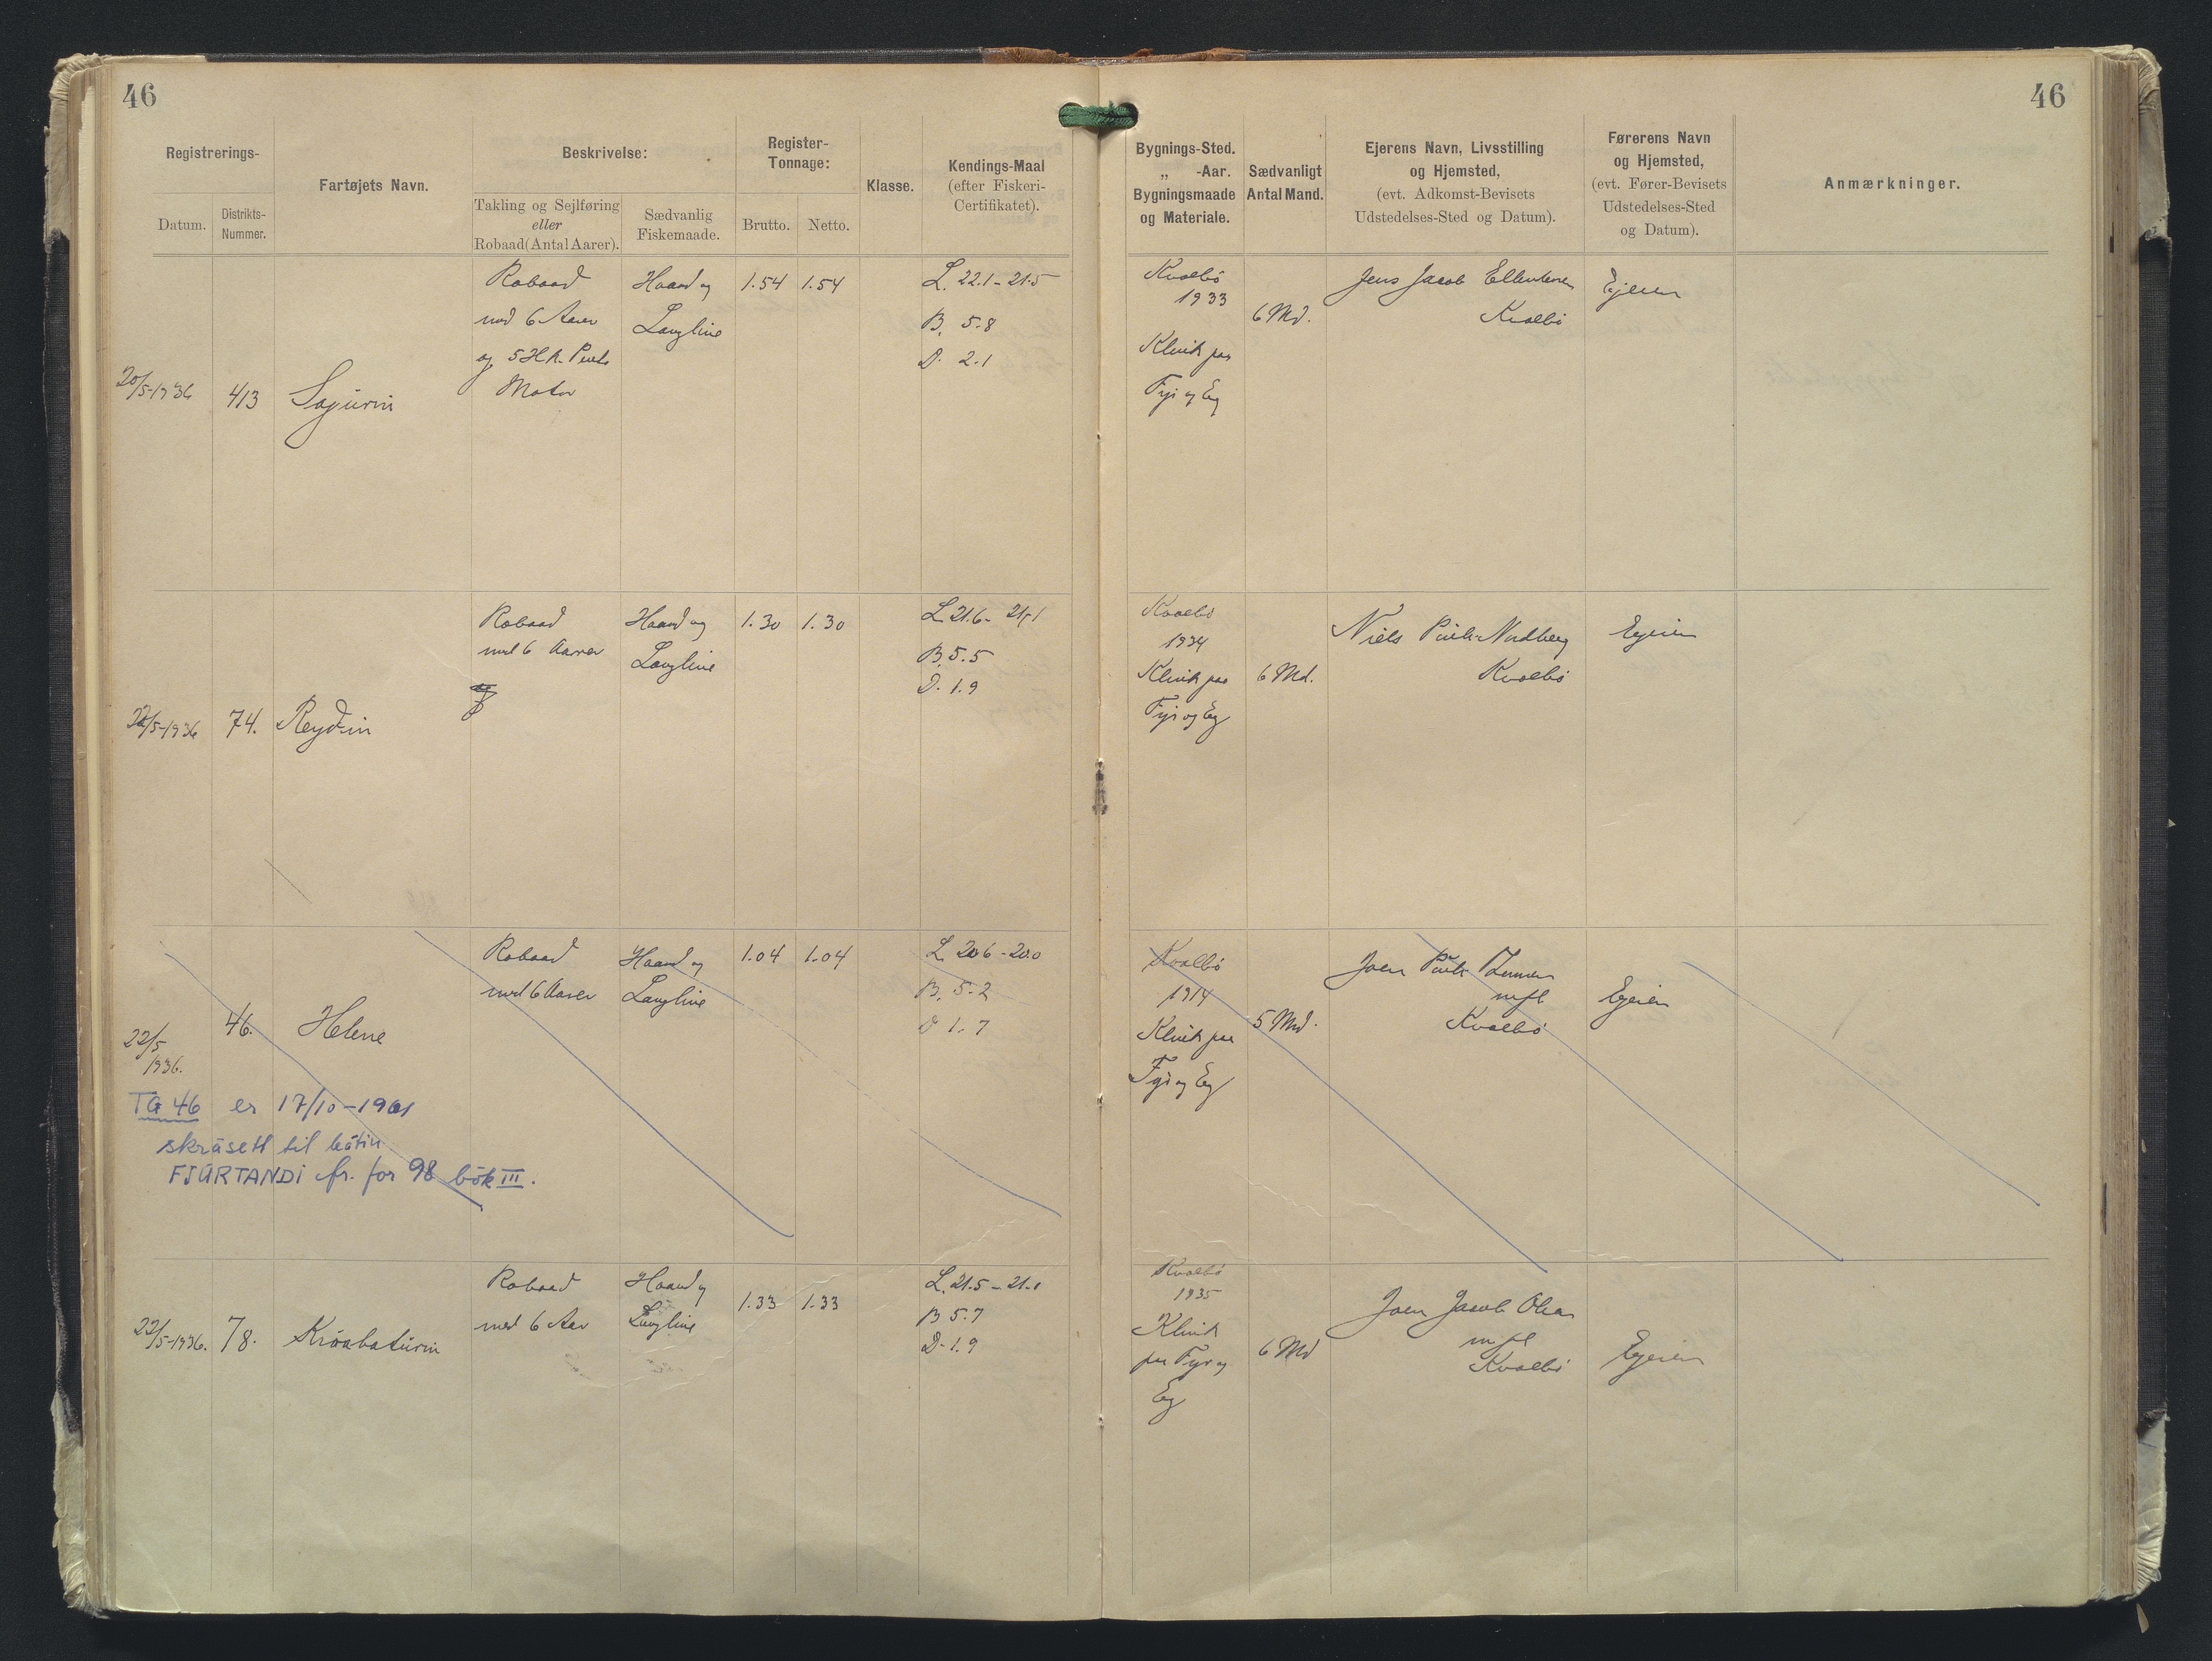 46
46
Registrerings-
Datum.
Distrikts-
Nummer.
Fartøjets Navn.
Beskrivelse:
Takling og Sejlføring
eller
Robaad (Antal Aarer).
Sædvanlig
Fiskemaade.
Register-
Tonnage:
Brutto.
Netto.
Klasse.
Kendings-Maal
(efter Fiskeri-
Certifikatet).
Bygnings-Sted.
„ -Aar.
Bygningsmaade
og Materiale.
Sædvanligt
Antal Mand.
Ejerens Navn, Livsstilling
og Hjemsted,
(evt. Adkomst-Bevisets
Udstedelses-Sted og Datum).
Førerens Navn
og Hjemsted,
(evt. Fører-Bevisets
Udstedelses-Sted
og Datum).
Anmærkninger.
20/5-1936
413
Robaad
med 6 Aarer
og 5 H.K.
Motor
Haand og
Langline
1.54
1.54
L. 22.1 - 21.5
B. 5.8
D. 2.1
Kvalbö
1933
Klink paa
Fyr og Eg
6 Md.
Jens Jacob
Kvalbö
Ejeren
22/5-1936
74.
Reyðin
Robaad
med 6 Aarer
Haand og
Langline
1.30
1.30
L. 21.6 - 21.1
B. 5.5
D. 1.9
Kvalbö
1934
Klink paa
Fyr og Eg
6 Md.
Niels Poul Nordberg
Kvalbö
Ejeren
22/5
1936.
46.
Helene
Robaad
med 6 Aarer
Haand og
Langline
1.04
1.04
L. 20.6 - 20.0
B. 5.2
D 1.7
Kvalbö
1914
Klink paa
Fyr og Eg
5 Md.
Joen Poul
m fl
Kvalbö
Ejeren
TG 46 er 17/10-1961
skrásett til bátin
FJÚRTANDI fr. for 98 bók III.
22/5-1936.
78.
Robaad
med 6 Aar
Haand og
Langline
1.33
1.33
L. 21.5 - 21.1
B 5.7
D. 1.9
Kvalbö
1935
Klink
paa Fyr og
Eg
6 Md
Joen Jacob Olsen
m fl
Kvalbö
Ejeren